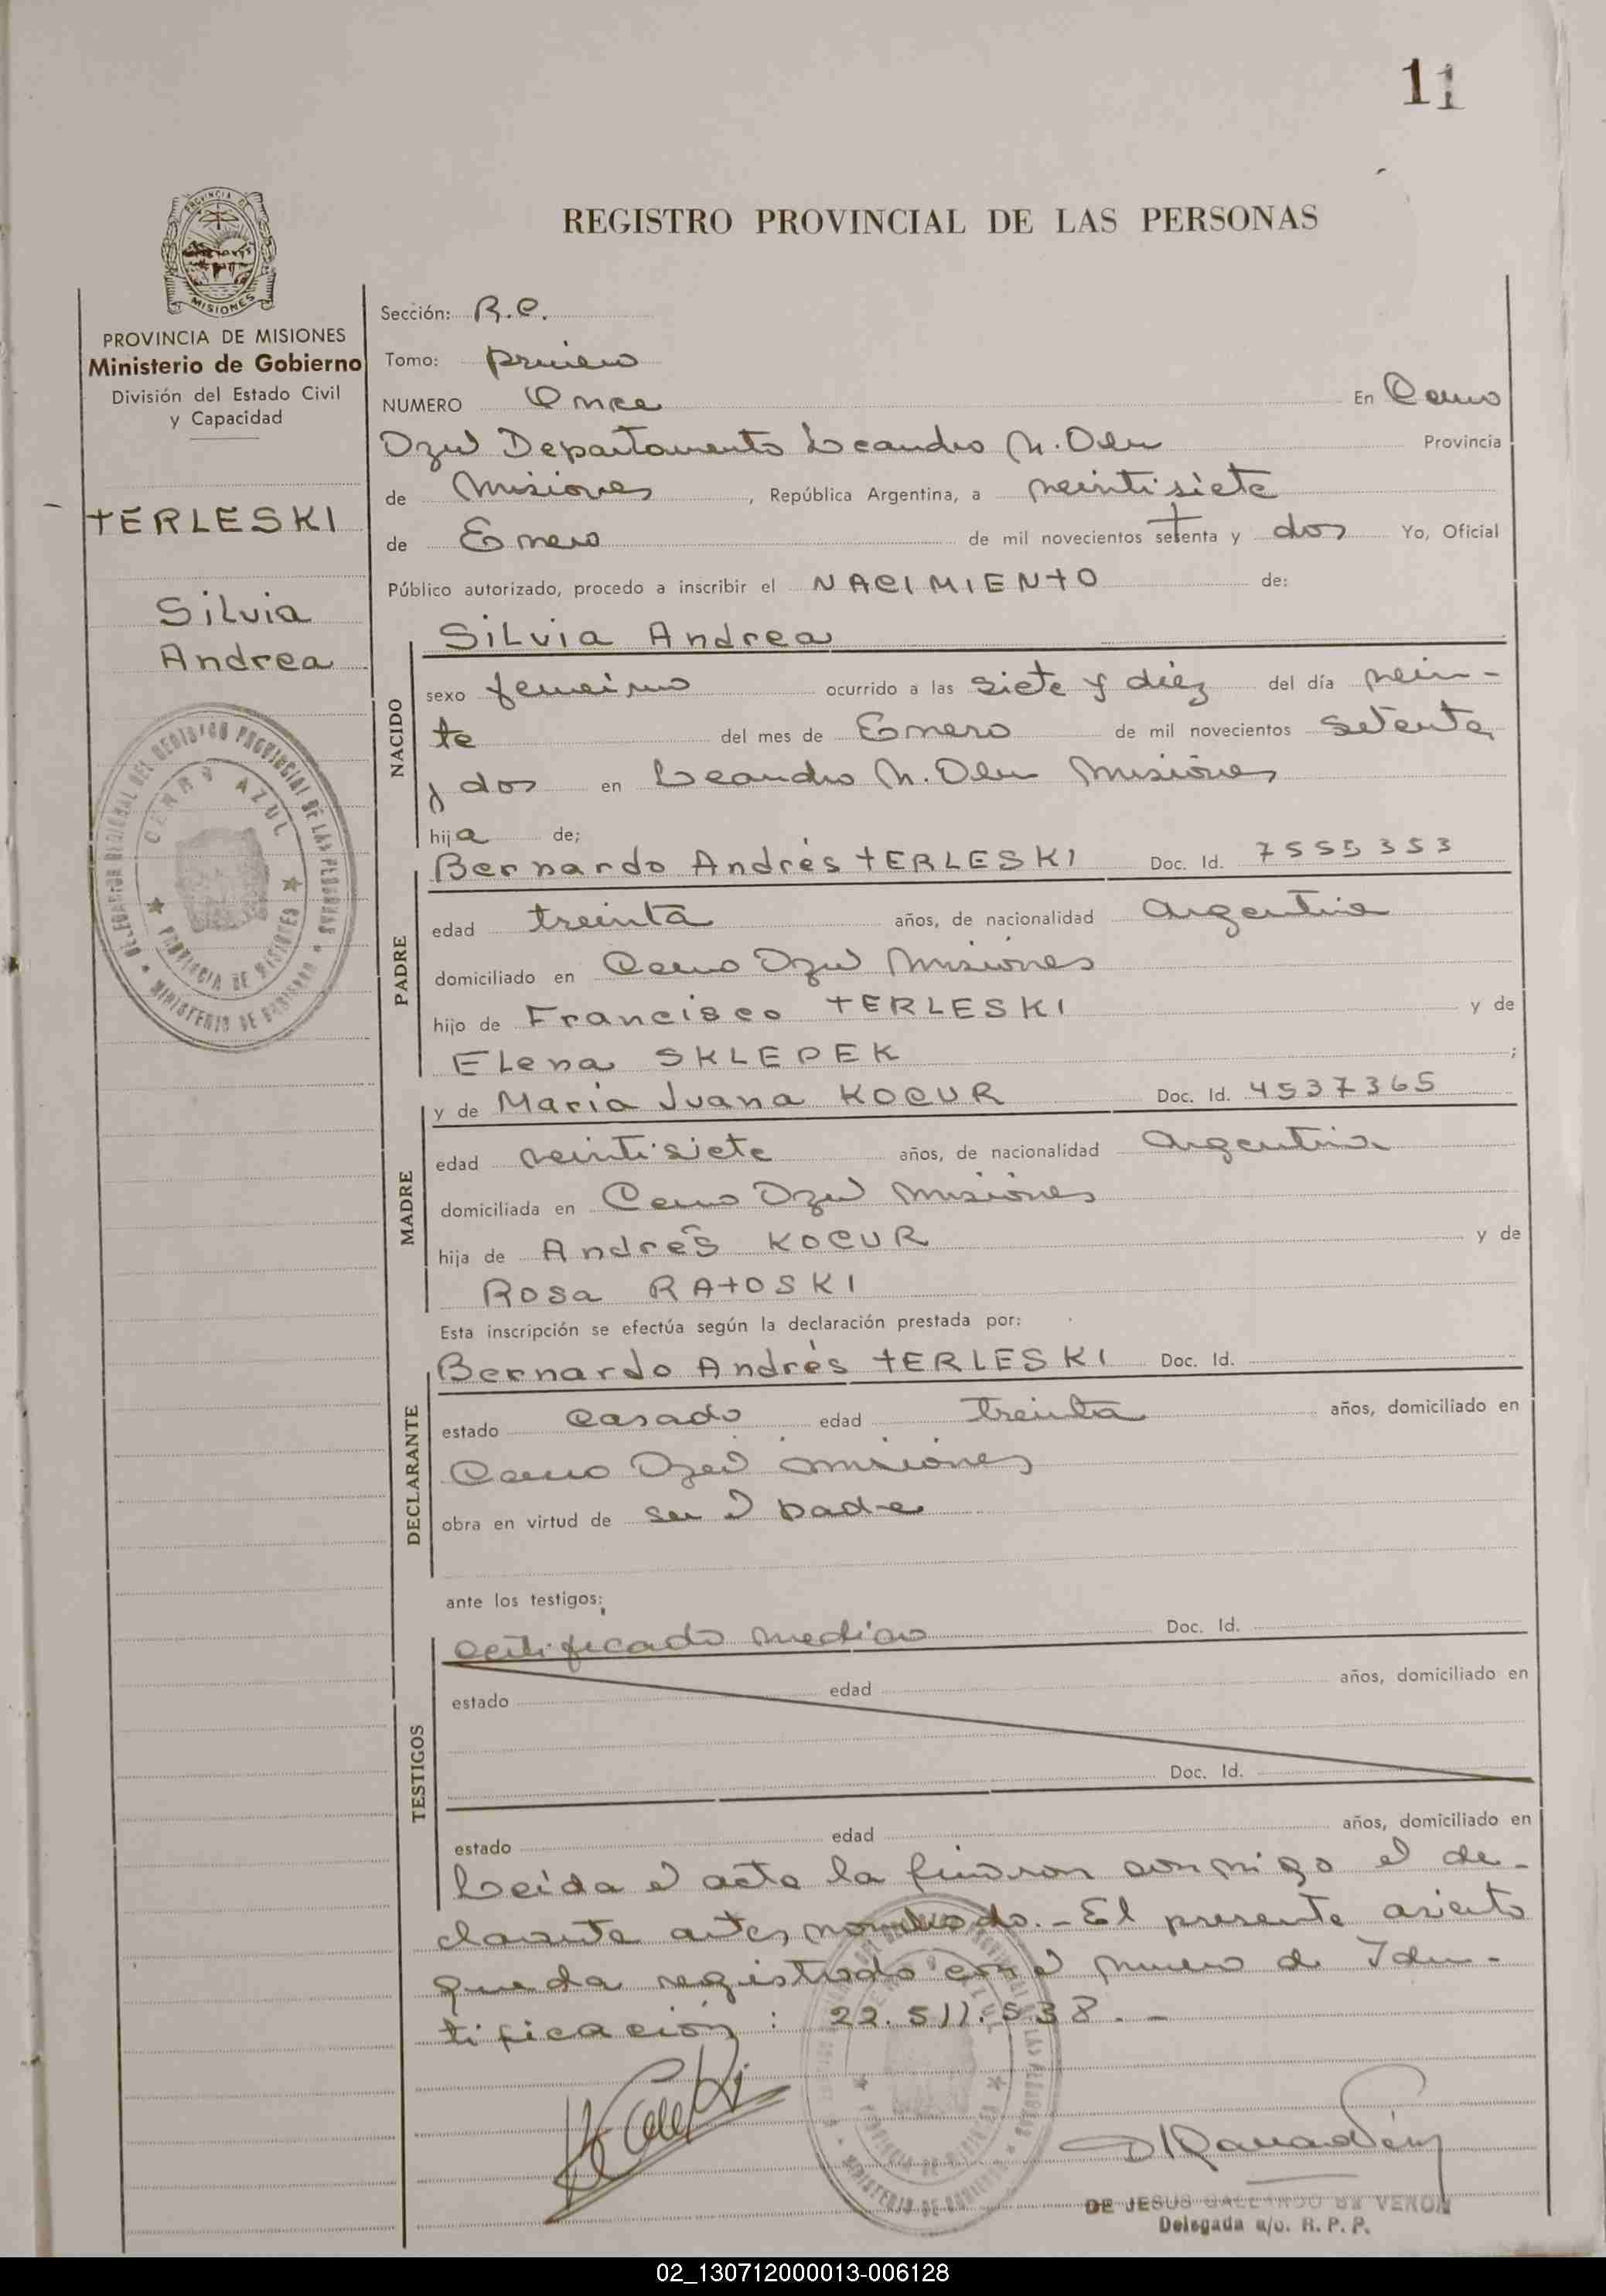 11
REGISTRO PROVINCIAL DE LAS PERSONAS
PROVINCIA DE MISIONES
Ministerio de Gobierno
División del Estado Civil
y Capacidad
TERLESKI
Silvia
Andrea
Sección: R.C.
Tomo: primero
NUMERO Once En Cerro
Azul Departamento Leandro N. Alem Provincia
de Misiones, República Argentina, a veintisiete
de Enero de mil novecientos setenta y dos Yo, Oficial
Público autorizado, procedo a inscribir el NACIMIENTO de:
NACIDO
Silvia Andrea
sexo femenino ocurrido a las siete y diéz del día vein-
te del mes de Enero de mil novecientos setenta
y dos en Leandro N. Alem Misiones
hija de;
PADRE
Bernardo Andrés TERLESKI Doc. Id. 7555353
edad treinta años, de nacionalidad argentina
domiciliado en Cerro Azul Misiones
hijo de Francisco TERLESKI y de
Elena SKLEPEK ;
MADRE
y de Maria Juana KOCUR Doc. Id. 4537365
edad veintisiete años, de nacionalidad argentina
domiciliada en Cerro Azul Misiones
hija de Andrés KOCUR y de
Rosa RATOSKI
Esta inscripción se efectúa según la declaración prestada por:
DECLARANTE
Bernardo Andrés TERLESKI Doc. Id.
estado casado edad treinta años, domiciliado en
Cerro Azul Misiones
obra en virtud de ser el padre
ante los testigos;
TESTIGOS
certificado medico Doc. Id.
estado edad años, domiciliado en
Doc. Id.
estado edad años, domiciliado en
Leida el acta la firmaron conmigo el de-
clarante antes nombrado.- El presente asiento
queda registrado con el numero de Iden-
tificación: 22.511.538.-
DELEGACION REGIONAL DEL REGISTRO PROVINCIAL DE LAS PERSONAS
CERRO AZUL
PROVINCIA DE MISIONES
MINISTERIO DE GOBIERNO
DE JESUS GALEANDO DE VERON
Delegada a/c. R. P. P.
02_130712000013-006128